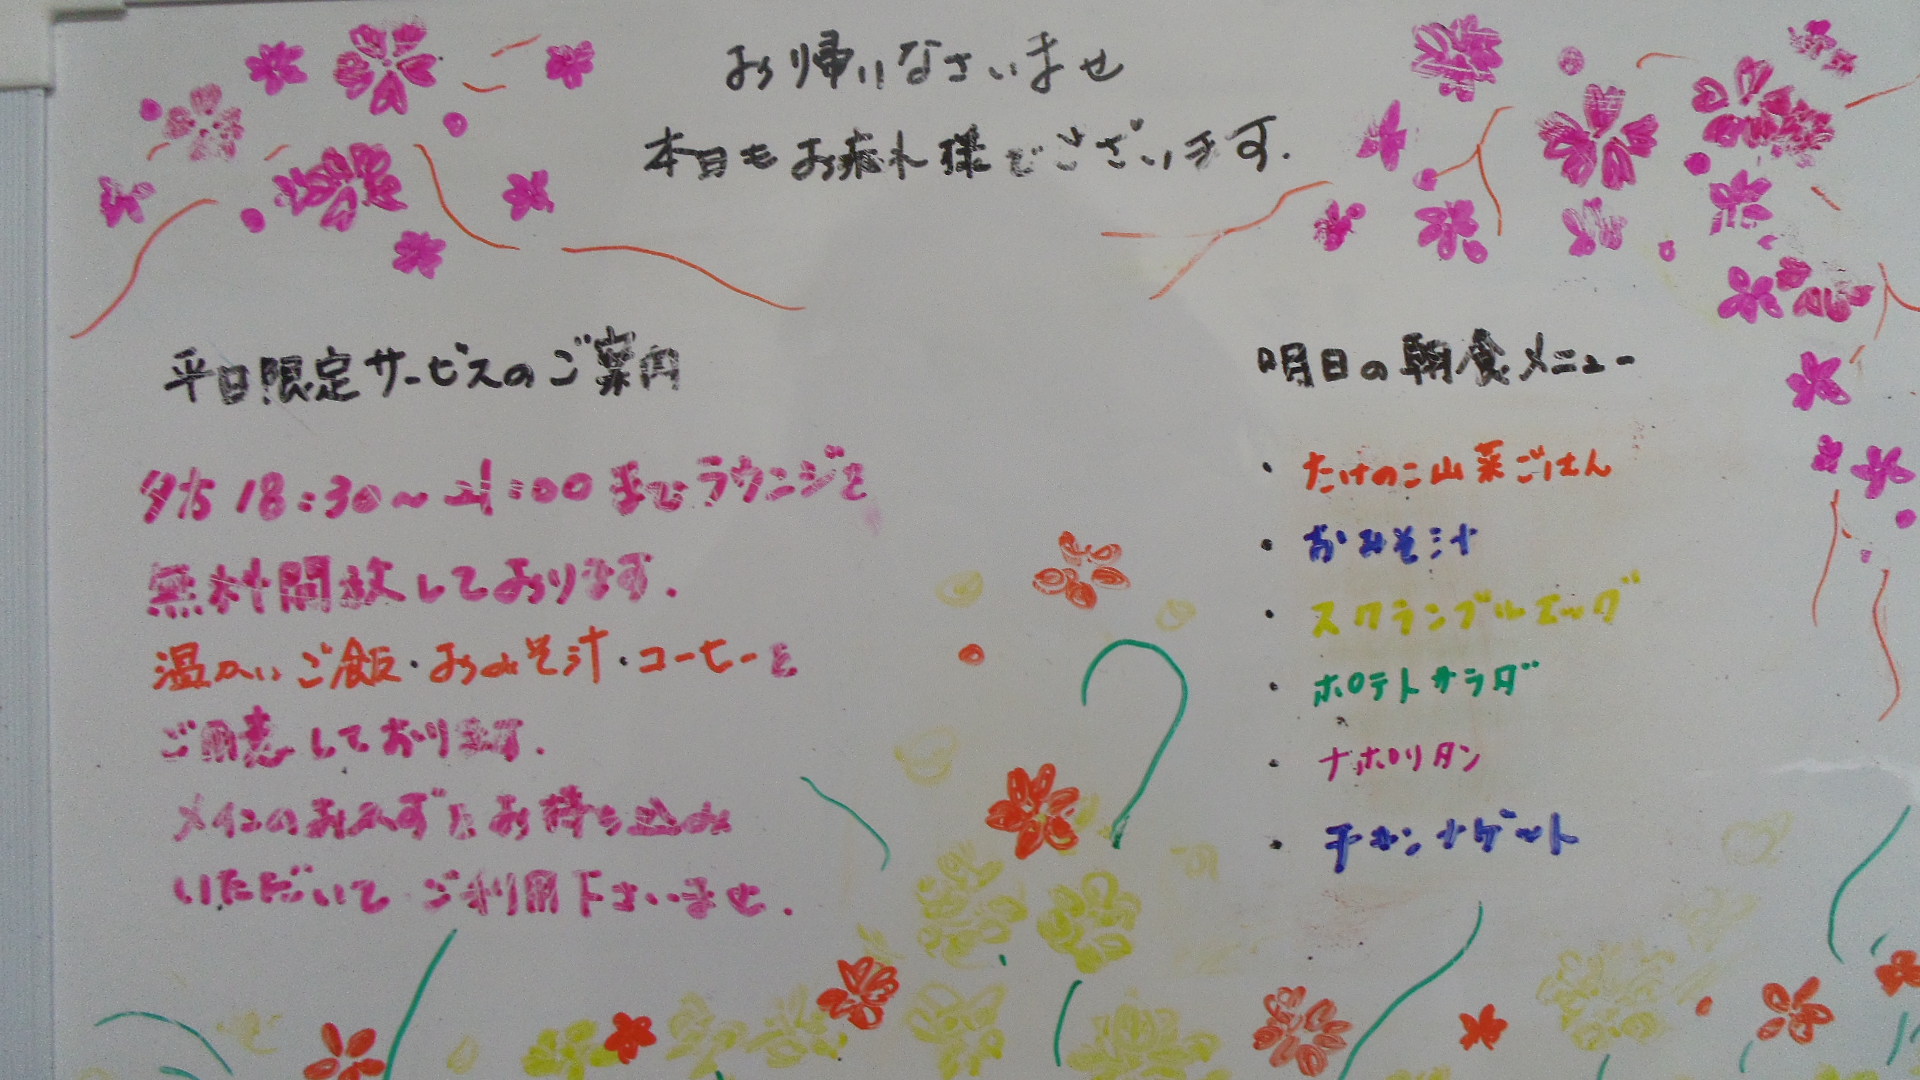 お帰りなさいませ
本日もお疲れ様でございます.
平日限定サービスのご案内
夕方 18:30～21:00 までラウンジを
無料開放しております.
温かいご飯・おみそ汁・コーヒーを
ご用意しております.
メインのおかずをお持ち込み
いただいて ご利用下さいませ.
明日の朝食メニュー
・たけのこ山菜ごはん
・おみそ汁
・スクランブルエッグ
・ポテトサラダ
・ナポリタン
・チキンナゲット